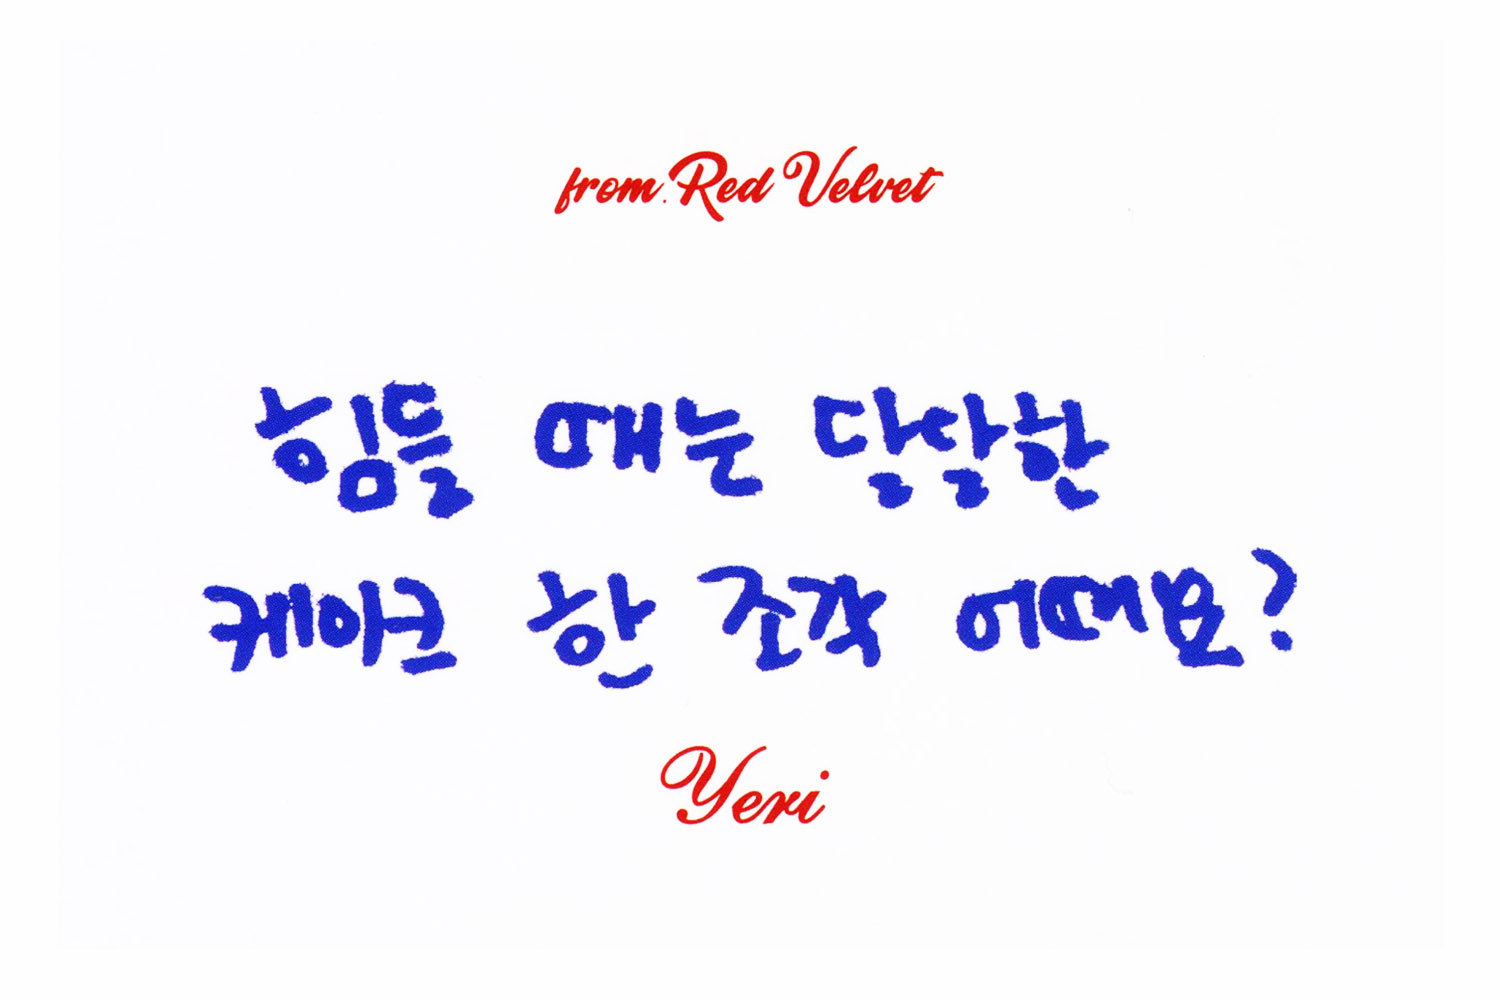 from. Red Velvet
힘들 때는 달달한
케이크 한 조각 어때요?
Yeri